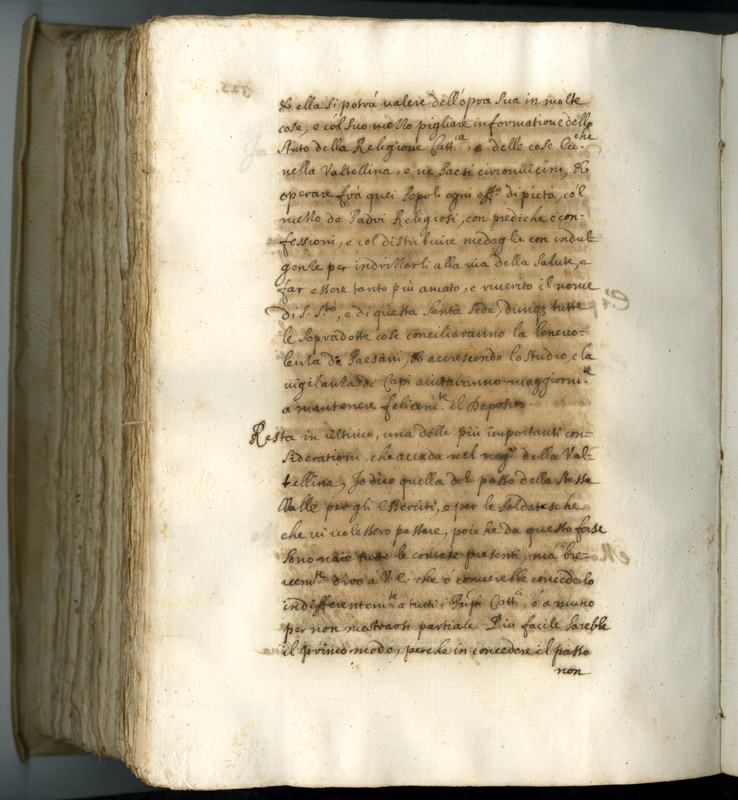 & ella si potrà valere dell'opra sua in molte
cose, e col suo mezzo pigliare informatione dello
stato della Religione Catt.ca, e delle cose che
nella Valtellina, e ne Paesi circonuicini, &
operare frà quei Popoli ogni off.o di pietà, col
mezzo de Padri Religiosi, con prediche e con-
fessioni, e col distribuire medaglie con indul
genze per indrizzarli alla via della salute, e
far essere tanto più amato, e riuerito il nome
di S. S.tà, e di questa Santa Sede, dunq; tutte
le sopradette cose conciliaranno la beneuo-
lenza de Paesani, & accrescendo lo studio, e la
uigilanza de Capi aiutaranno maggiorm.te
a mantenere felicem.te il Deposito.
Resta in ultimo, una delle più importanti con-
siderationi, che accada nel neg.o della Val-
tellina, Io dico quella del passo della stessa
Valle per gli Esserciti, e per le soldatesche
che ui uolessero passare, poiche da questo forse
sono nate tutte le contese presenti, mà bre-
uem.te dirò a V.E. che ò conuerebbe concederlo
indifferentem.te a tutti i Prĩpi Catt.ci, ò a niuno
per non mostrarsi partiale. Più facile sarebbe
il primo modo, perche in concedere il passo
non